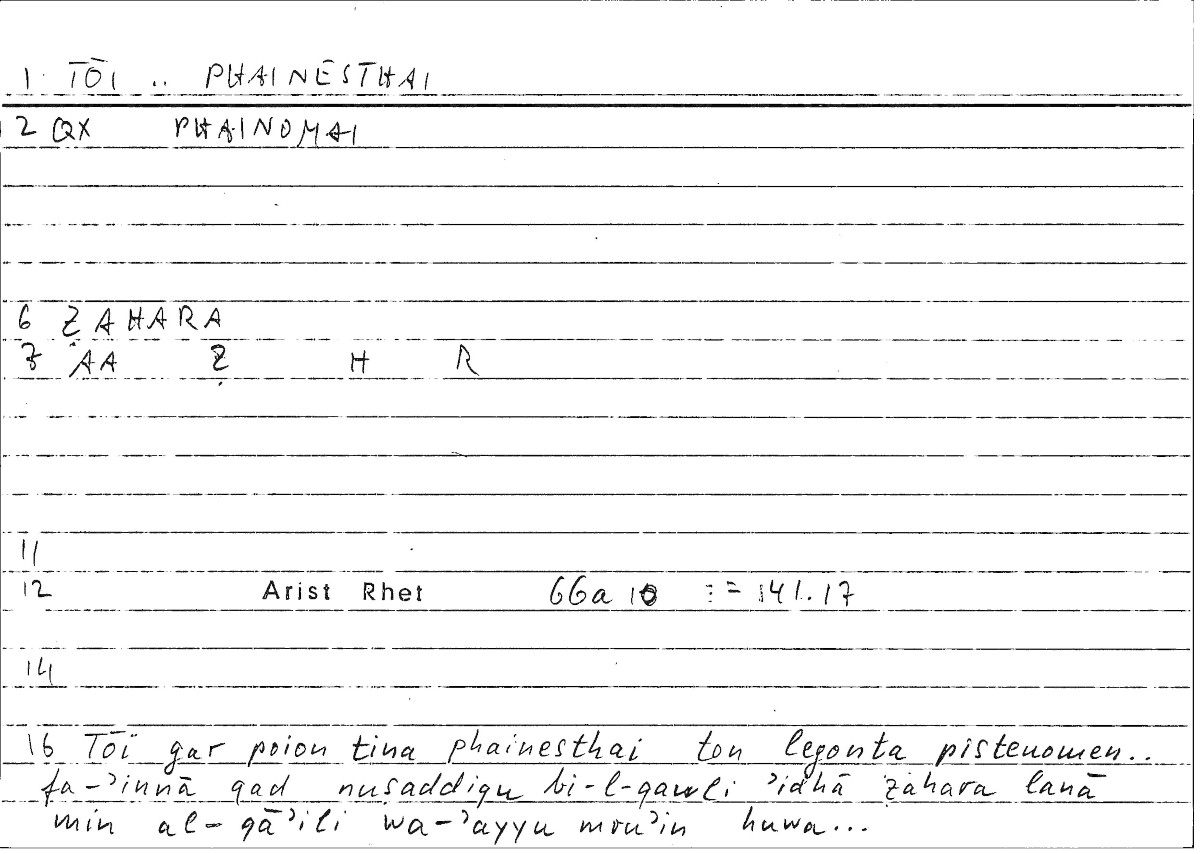 1 TŌI .. PHAINĒSTHAI
2 QX PHAINOMAI
6 ẒAHARA
7 AA Ẓ H R
11
12 Arist Rhet 66a 10 := 141.17
14
16 Tōi gar poion tina phainesthai ton legonta pisteuomen..
fa-ʾinnā qad nuṣaddiqu bi-l-qawli ʾidhā ẓahara lanā
min al-qāʾili wa-ʾayyu mruʾin huwa...